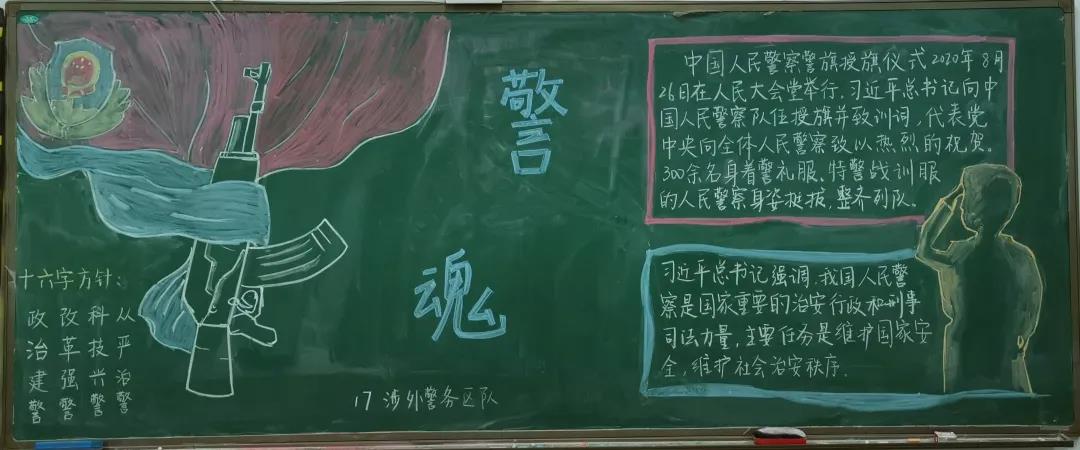 警
魂
十六字方针：
政 改 科 从
治 革 技 严
建 强 兴 治
警 警 警 警
17 涉外警务区队
中国人民警察警旗授旗仪式2020年8月
26日在人民大会堂举行，习近平总书记向中
国人民警察队伍授旗并致训词，代表党
中央向全体人民警察致以热烈的祝贺。
300余名身着警礼服、特警战训服
的人民警察身姿挺拔，整齐列队。
习近平总书记强调，我国人民警
察是国家重要的治安行政和刑事
司法力量，主要任务是维护国家安
全，维护社会治安秩序.